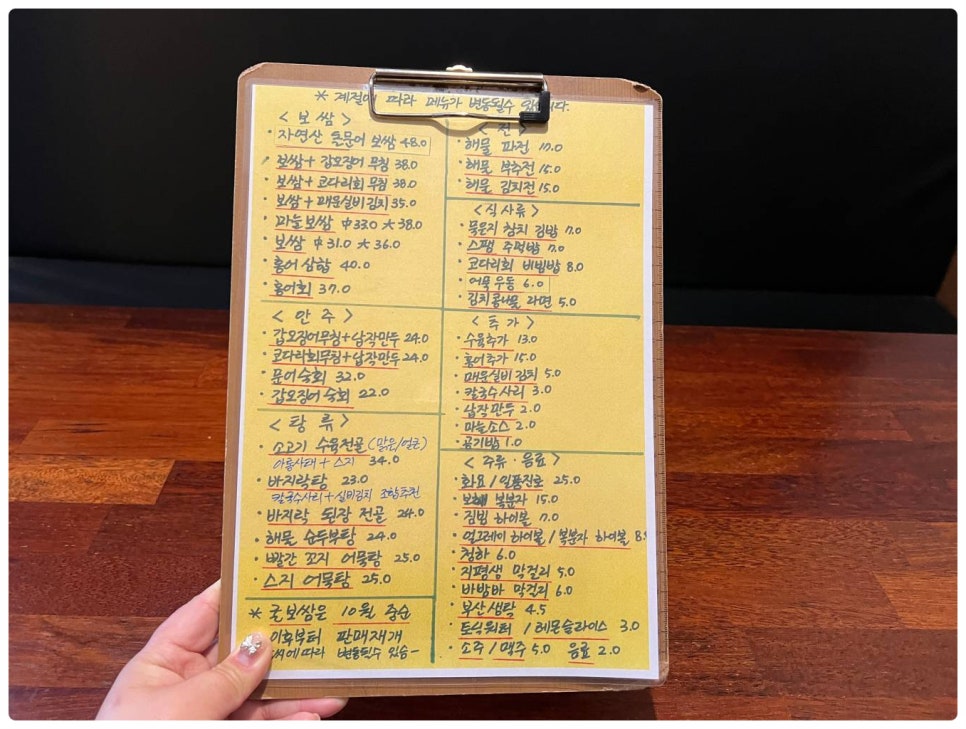 * 계절에 따라 메뉴가 변동될수 있습니다.
< 보 쌈 >
· 자연산 돌문어 보쌈 48.0
· 보쌈 + 갑오징어 무침 38.0
· 보쌈 + 코다리회 무침 38.0
· 보쌈 + 매운실비김치 35.0
· 마늘보쌈 中 33.0 大 38.0
· 보쌈 中 31.0 大 36.0
· 홍어 삼합 40.0
· 홍어회 37.0
< 안 주 >
· 갑오징어무침+납작만두 24.0
· 코다리회무침+납작만두 24.0
· 문어숙회 32.0
· 갑오징어 숙회 22.0
< 탕 류 >
· 소고기 수육전골 (맑음/얼큰)
아롱사태 + 스지 34.0
· 바지락탕 23.0
칼국수사리 + 실비김치 조합추천
· 바지락 된장 전골 24.0
· 해물 순두부탕 24.0
· 빨간 꼬지 어묵탕 25.0
· 스지 어묵탕 25.0
* 굴보쌈은 10월 중순
이후부터 판매재개
변동될수 있음-
< 전 >
· 해물 파전 17.0
· 해물 부추전 15.0
· 해물 김치전 15.0
< 식사류 >
· 묵은지 참치 김밥 7.0
· 스팸 주먹밥 7.0
· 코다리회 비빔밥 8.0
· 어묵 우동 6.0
· 김치콩나물 라면 5.0
< 추 가 >
· 수육추가 13.0
· 홍어추가 15.0
· 매운실비김치 5.0
· 칼국수사리 3.0
· 납작만두 2.0
· 마늘소스 2.0
· 공기밥 1.0
< 주류 · 음료 >
· 화요 / 일품진로 25.0
· 보해 복분자 15.0
· 짐빔 하이볼 7.0
· 얼그레이 하이볼 / 복분자 하이볼
· 청하 6.0
· 지평생 막걸리 5.0
· 바밤바 막걸리 6.0
· 부산생탁 4.5
· 토닉워터 / 레몬슬라이스 3.0
· 소주 / 맥주 5.0 음료 2.0